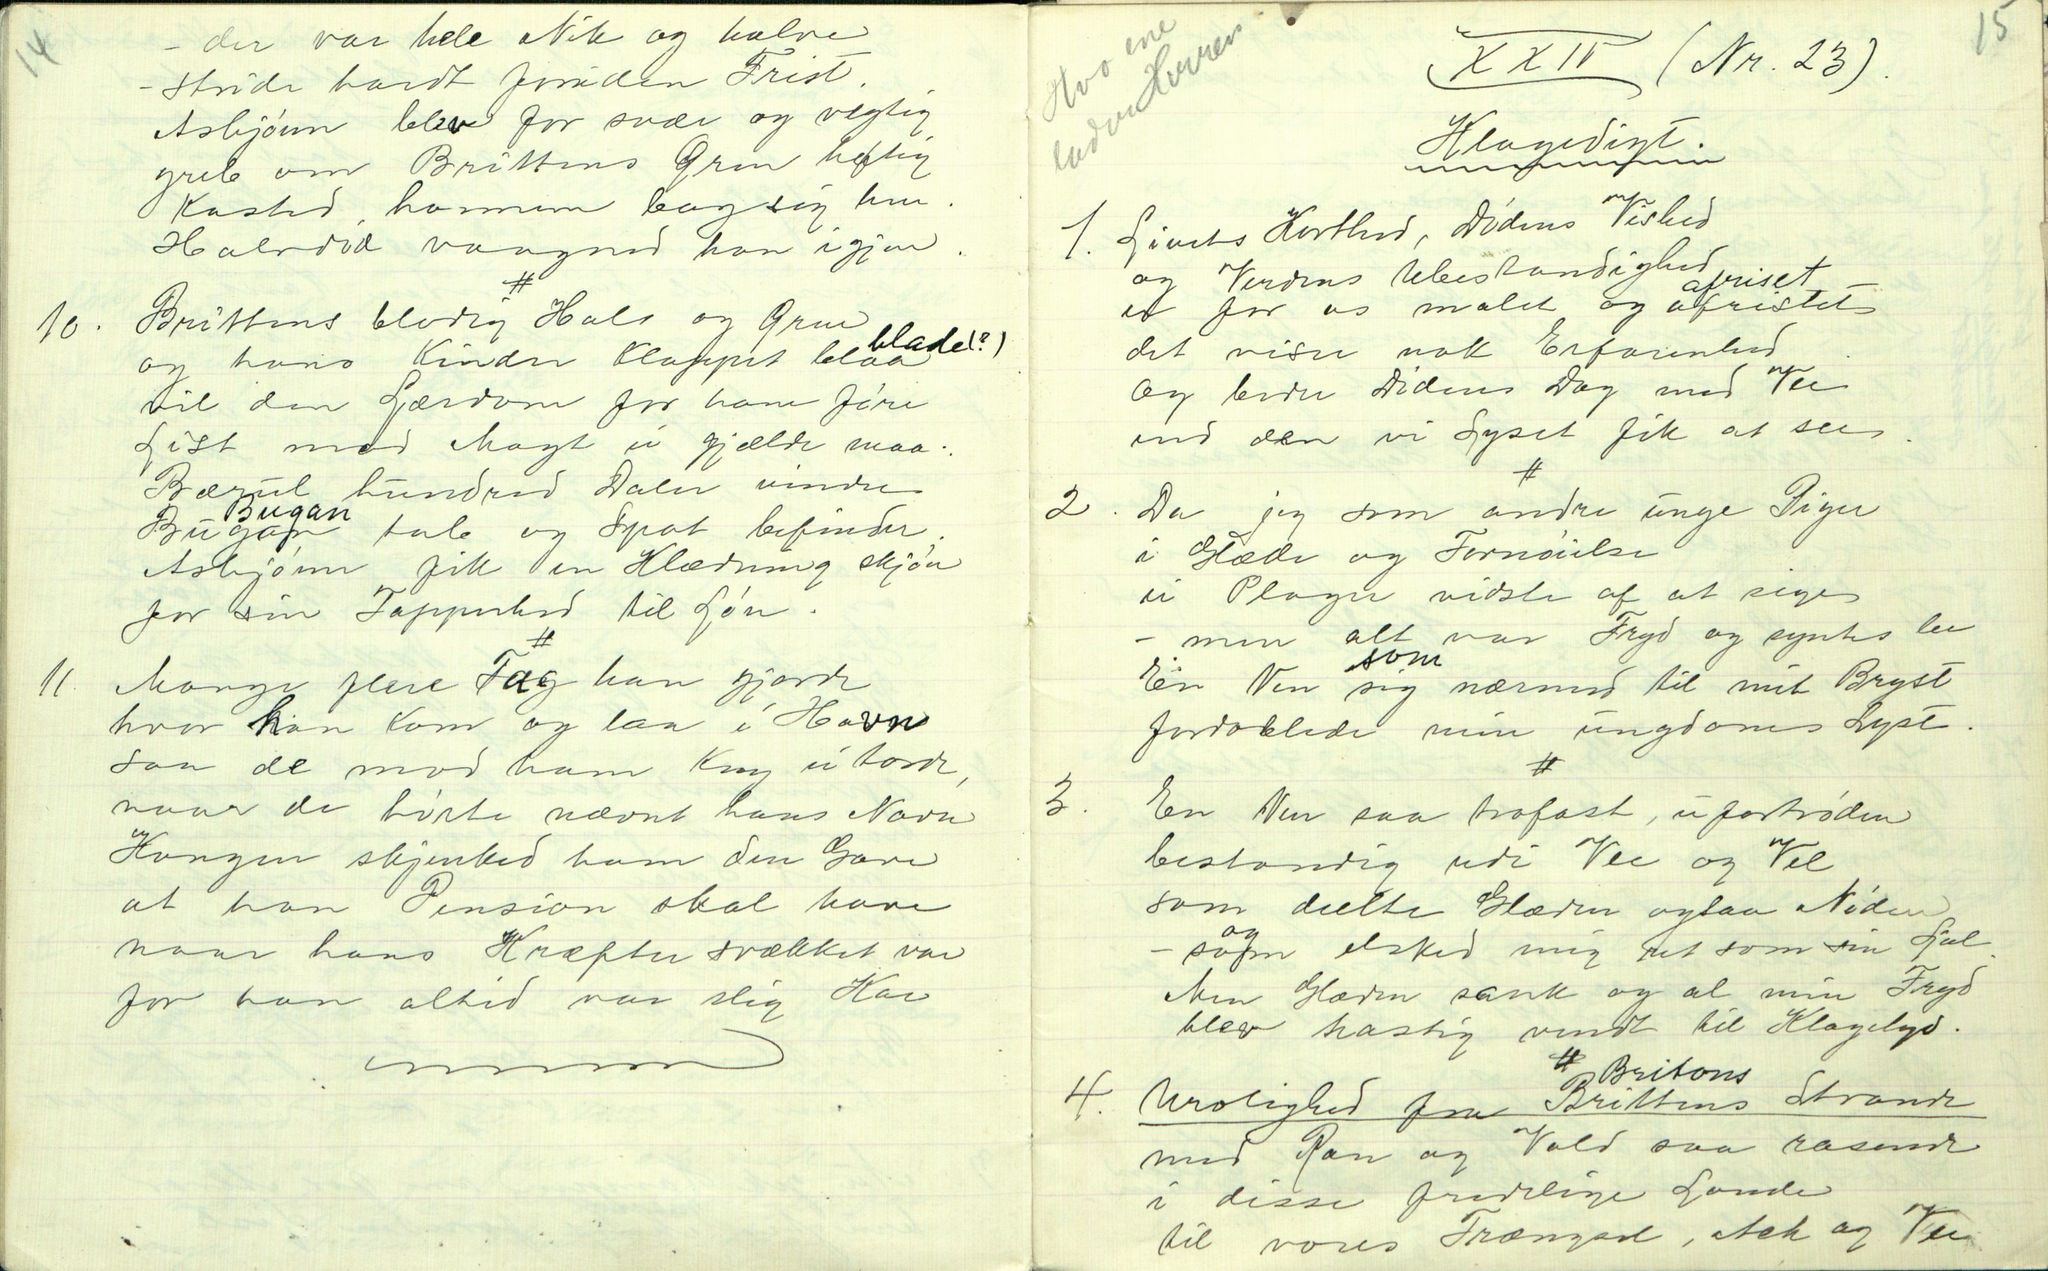 14
- der var hele Nik og halve
- stride hardt foruden Frist.
Asbjörnn blev for svær og vegtig
greb om Brittens Gren heftig
Kasted, hannem bag sig hen.
Halvdöd vaagned han igjen.
#
10. Brittens blodig Hals og Grue
blade(?)
og hans Kinder Klappet blaa
vil den Lærdom for ham före
List mod Magt ei gjælde maa.
Bærul hundred Daler vinder
Bugan
Bugan tab og Spot befinder.
Asbjörnn fik en Klædning skjön
for sin Tapperhed til Lön.
#
11. Mange flere Tag han gjorde
hvor han kom og laa i Havn
saa de mod ham Kny ei torde,
naar de hörte nævnt hans Navn
Kongen skjenked ham den Gave
at han Pension skal have
naar hans Kræfter svækket var
for han altid var slig Kar
15
Hvo ene
lader Herren
XXIV (Nr. 23).
Klagedigt.
1. Livets Korthed, Dödens Vished
og Verdens Ubestandighed
afriset
er for os malet og afristet
det viser nok Erfarenhed
og bedre Dödens Dag med Vee
end den vi Lyset fik at see.
#
2. Da jeg som andre unge Piger
i Glæde og Fornöielse
ei Plager vidste af at sige
- men alt var Fryd og syntes lee
som
En Ven sig nærmed til mit Bryst
fordoblede min ungdoms Lyst.
#
3. En Ven saa trofast, ufortröden
bestandig udi Vee og Vel
som deelte Glæden ogsaa Nöden
og
- som elsked mig ret som sin Sjæl.
Men Glæden sank og al min Fryd
blev hastig vendt til Klagelyd.
#
Britons
4. Urolighed fra Brittens Strande
med Ran og Vold saa rasende
i disse fredelige Lande
til vores Trængsel, Ack og Vee